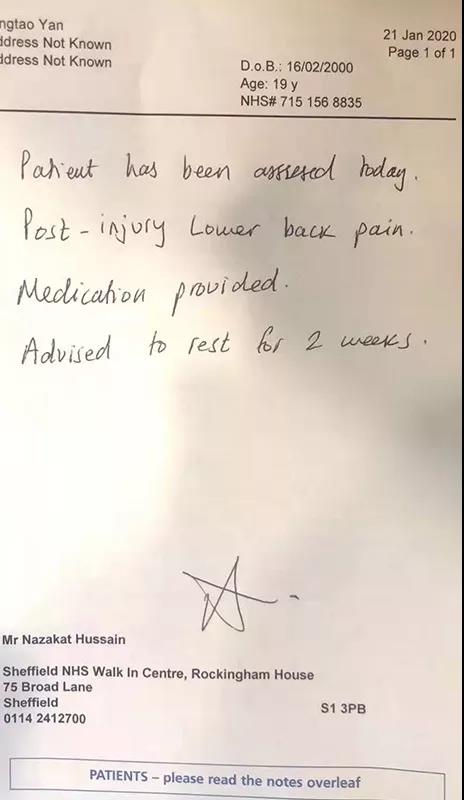 ngtao Yan
ddress Not Known
ddress Not Known
21 Jan 2020
Page 1 of 1
D.o.B.: 16/02/2000
Age: 19 y
NHS# 715 156 8835
Patient has been asssesed today.
Post-injury Lower back pain.
Medication provided.
Advised to rest for 2 weeks.
Mr Nazakat Hussain
Sheffield NHS Walk In Centre, Rockingham House
75 Broad Lane
Sheffield S1 3PB
0114 2412700
PATIENTS – please read the notes overleaf